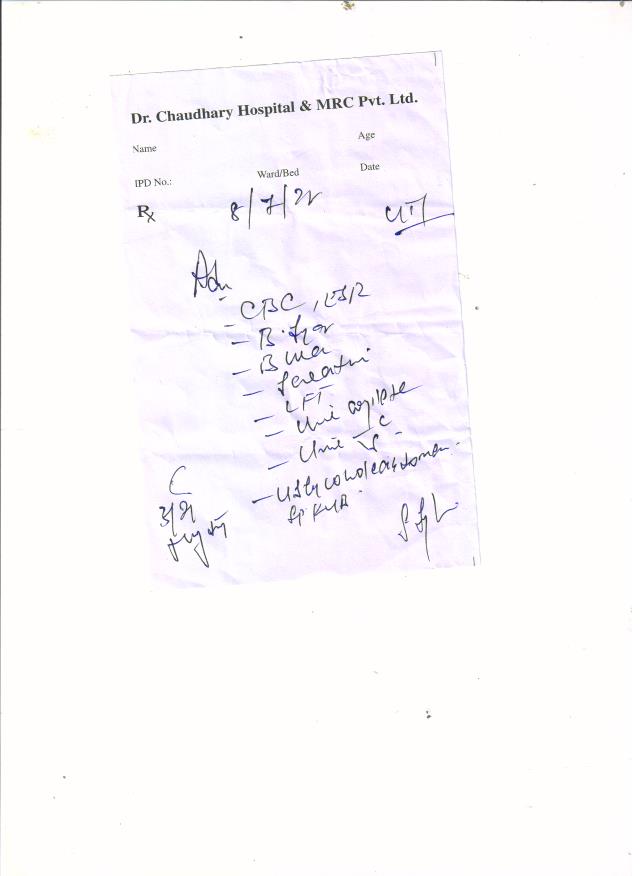 Dr. Chaudhary Hospital & MRC Pvt. Ltd.
Name Age
IPD No.: Ward/Bed Date
Rx 8/7/22 UTI
Adv
- CBC, ESR
- B. Sugar
- B urea
- S creatini
- LFT
- Urine
- Urine C/S
- USG whole abdomen
KUB